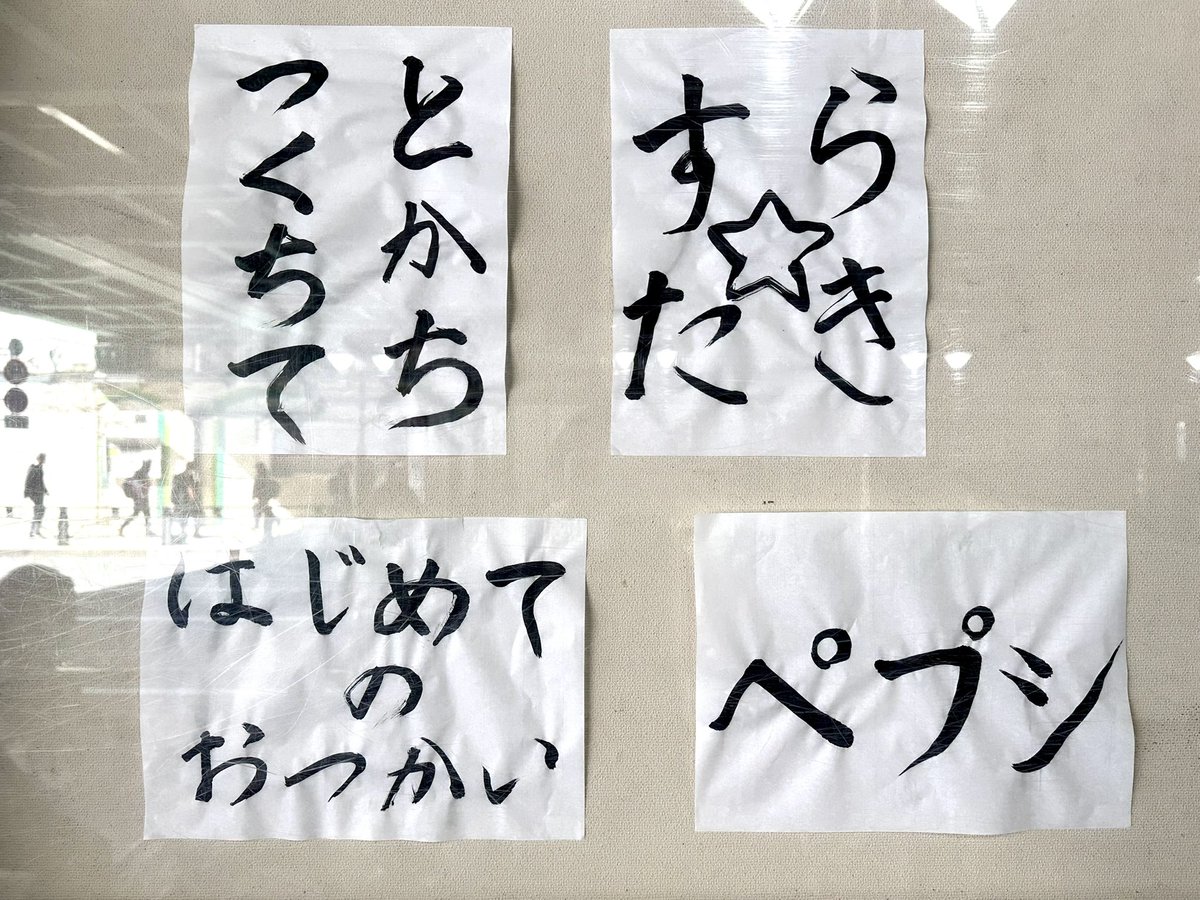 とかち
つくちて
らき
☆
すた
はじめて
の
おつかい
ペプシ